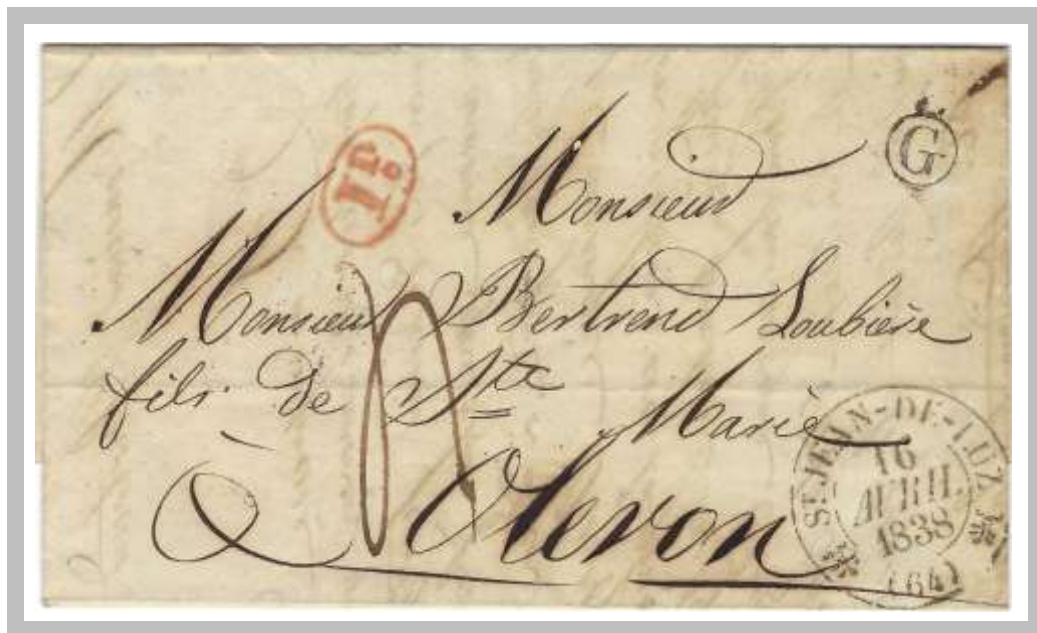 1D.
G
Monsieur
Monsieur Bertrend Loubière
fils de Ste Marie
à Oleron
ST JEAN-DE-LUZ
16
AVRIL
1838
(64)